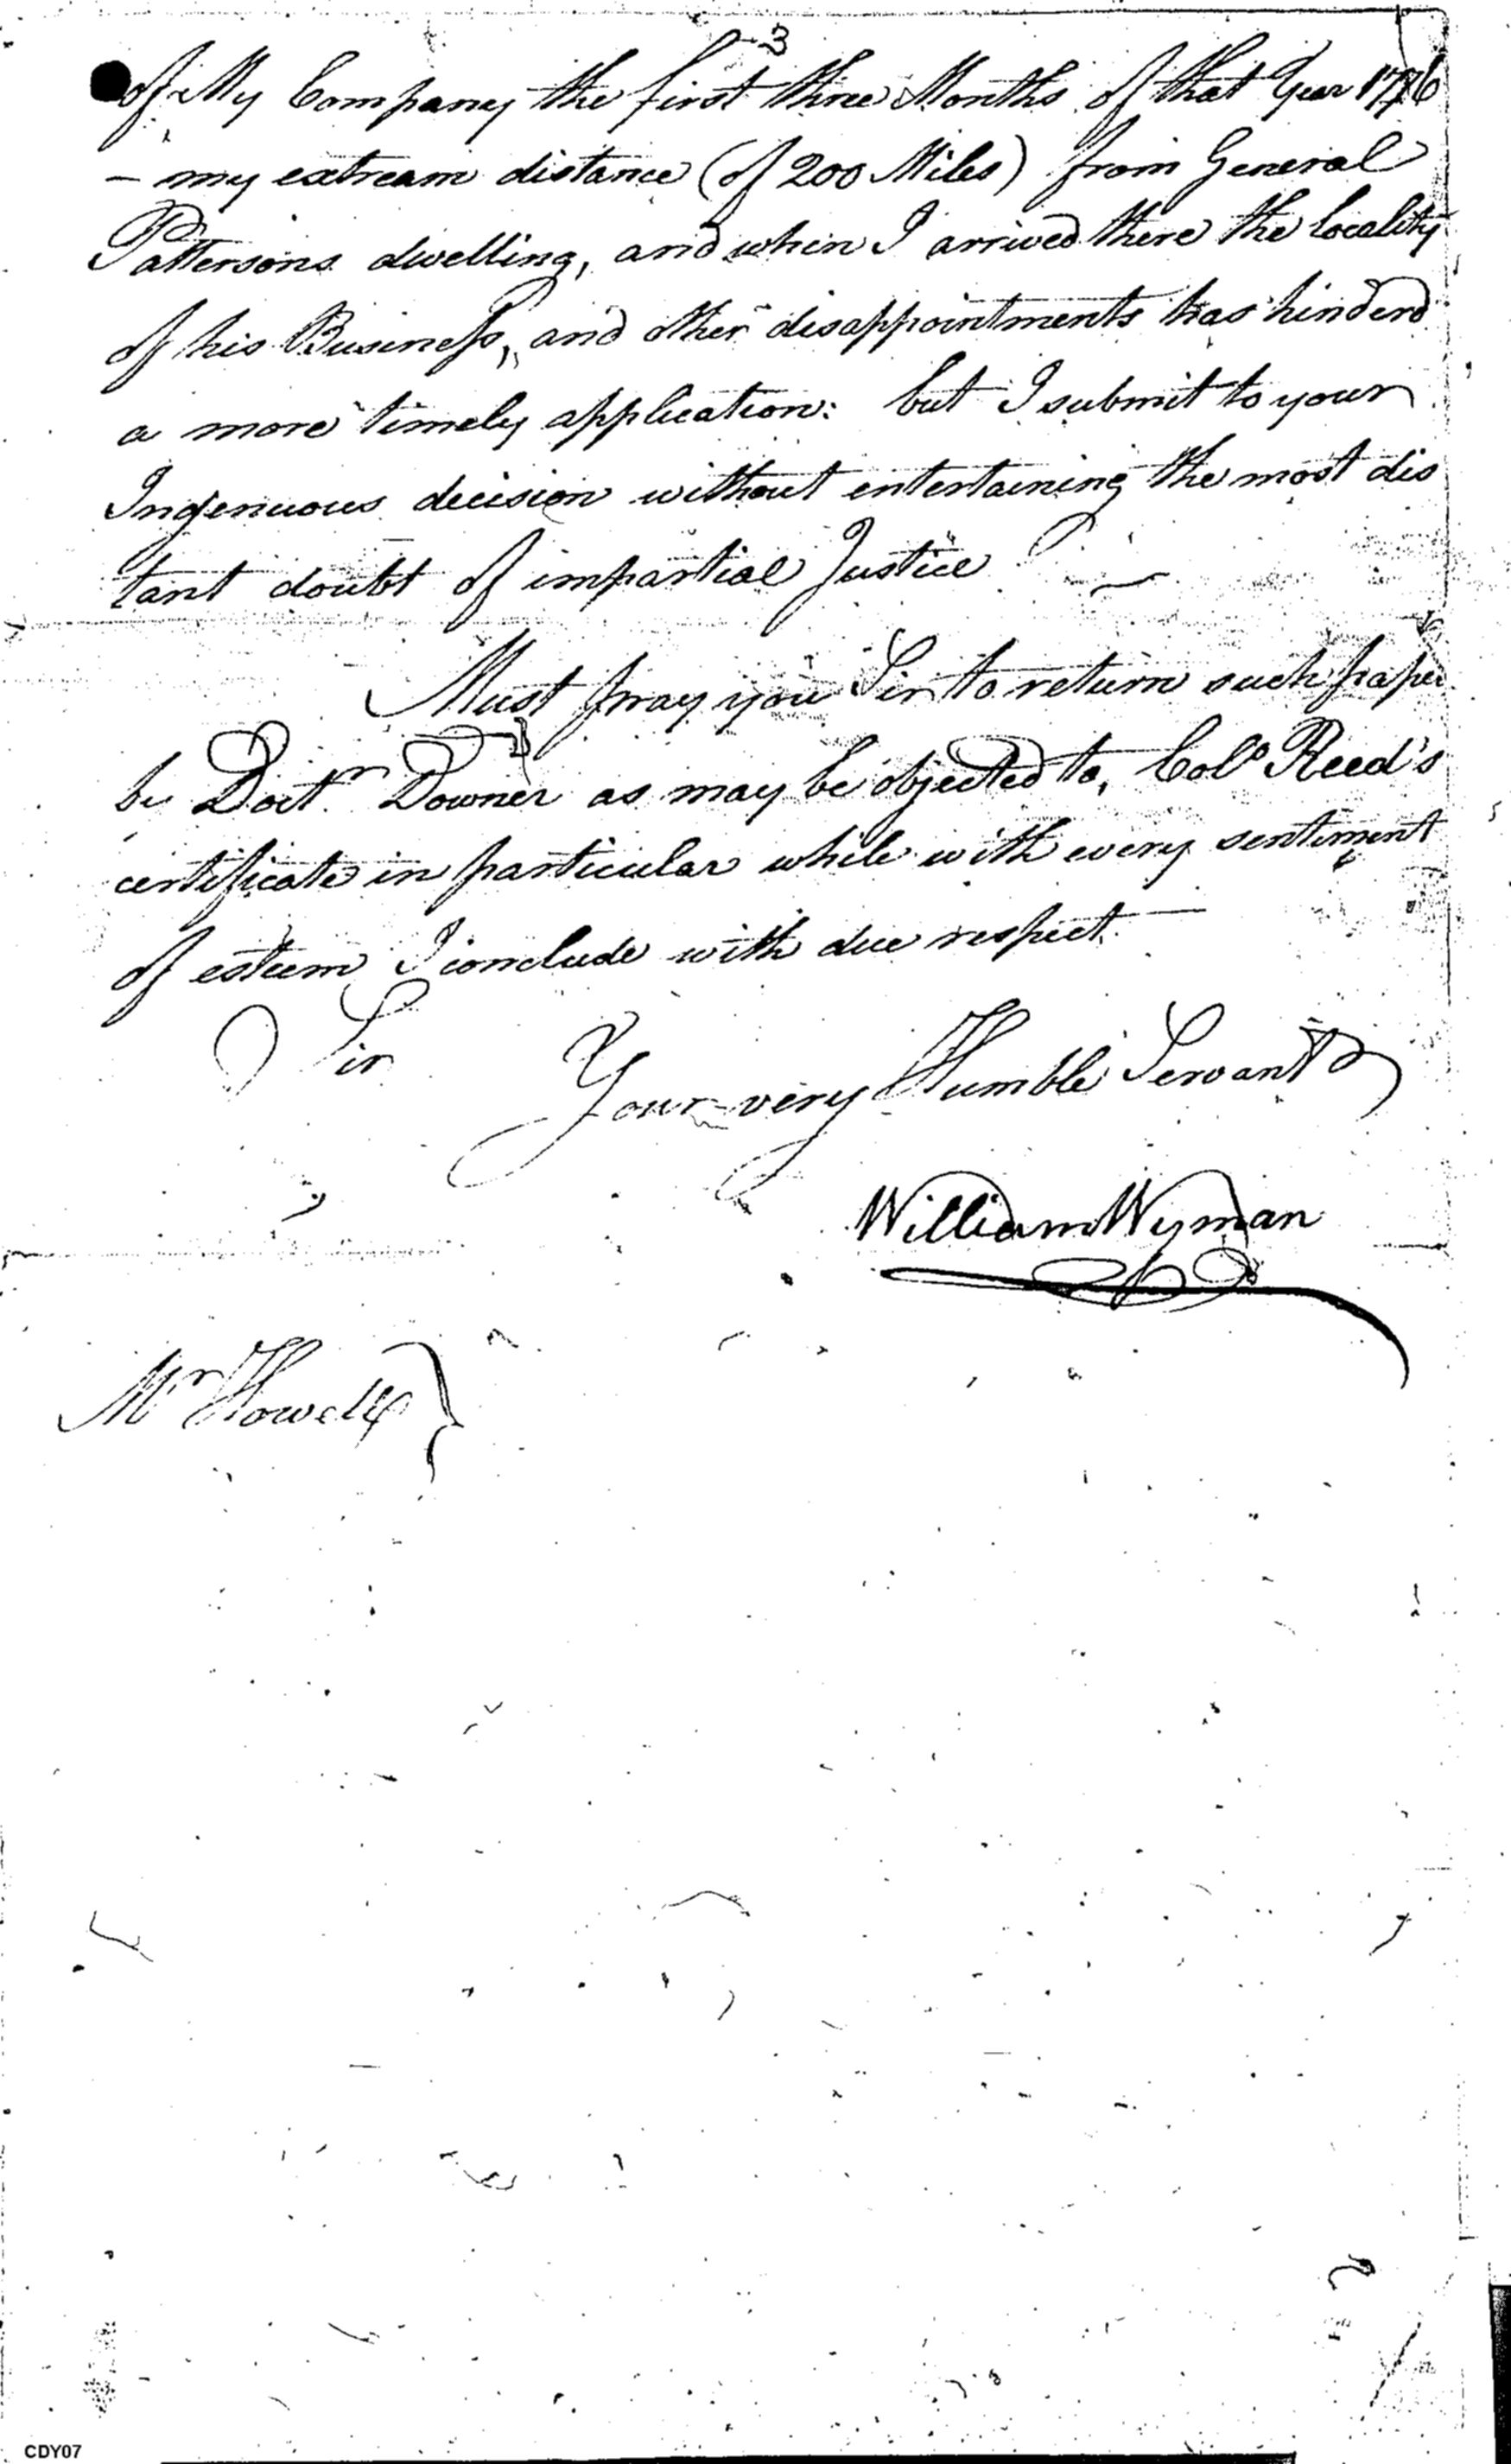 3
of My Company the first three Months of that Year 1776
– my extream distance (of 200 Miles) from General
Pattersons dwelling, and when I arrived there the locality
of his Business, and other disappointments has hinderd
a more timely application: but I submit to your
Ingenuous decision without entertaining the most dis
tant doubt of impartial Justice
Must pray you Sir to return such paper
by Doctr Downer as may be objected to, Colo Reed's
certificate in particular while with every sentiment
of esteem I conclude with due respect. —
Sir
Your very Humble Servant
William Wyman
Mr Howell
CDY07